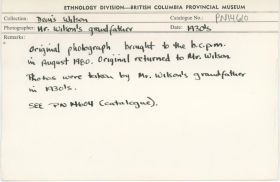 ETHNOLOGY DIVISION—BRITISH COLUMBIA PROVINCIAL MUSEUM
Collection: Denis Wilson Catalogue No.: PN14610
Photographer: Mr. Wilson's grandfather Date: 1930s
Remarks:
Original photograph brought to the b.c.p.m.
in August 1980. Original returned to Mr. Wilson
Photos were taken by Mr. Wilson's grandfather
in 1930's.
SEE PN 14604 (catalogue).